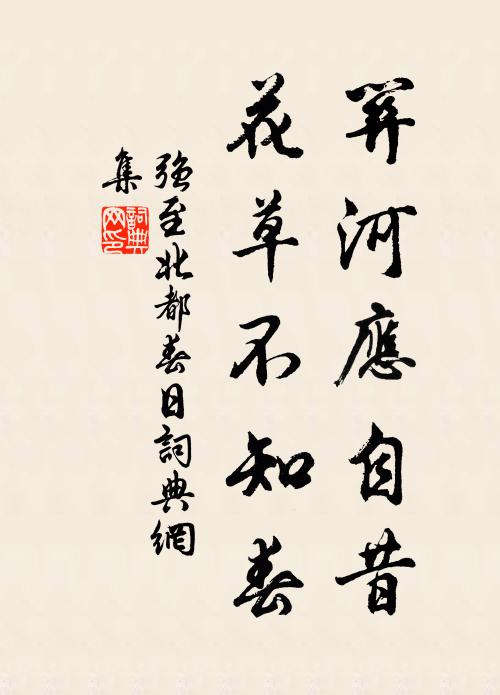 關河應自昔
花草不知春
強至北都春日詞典網
集
詞典
网印